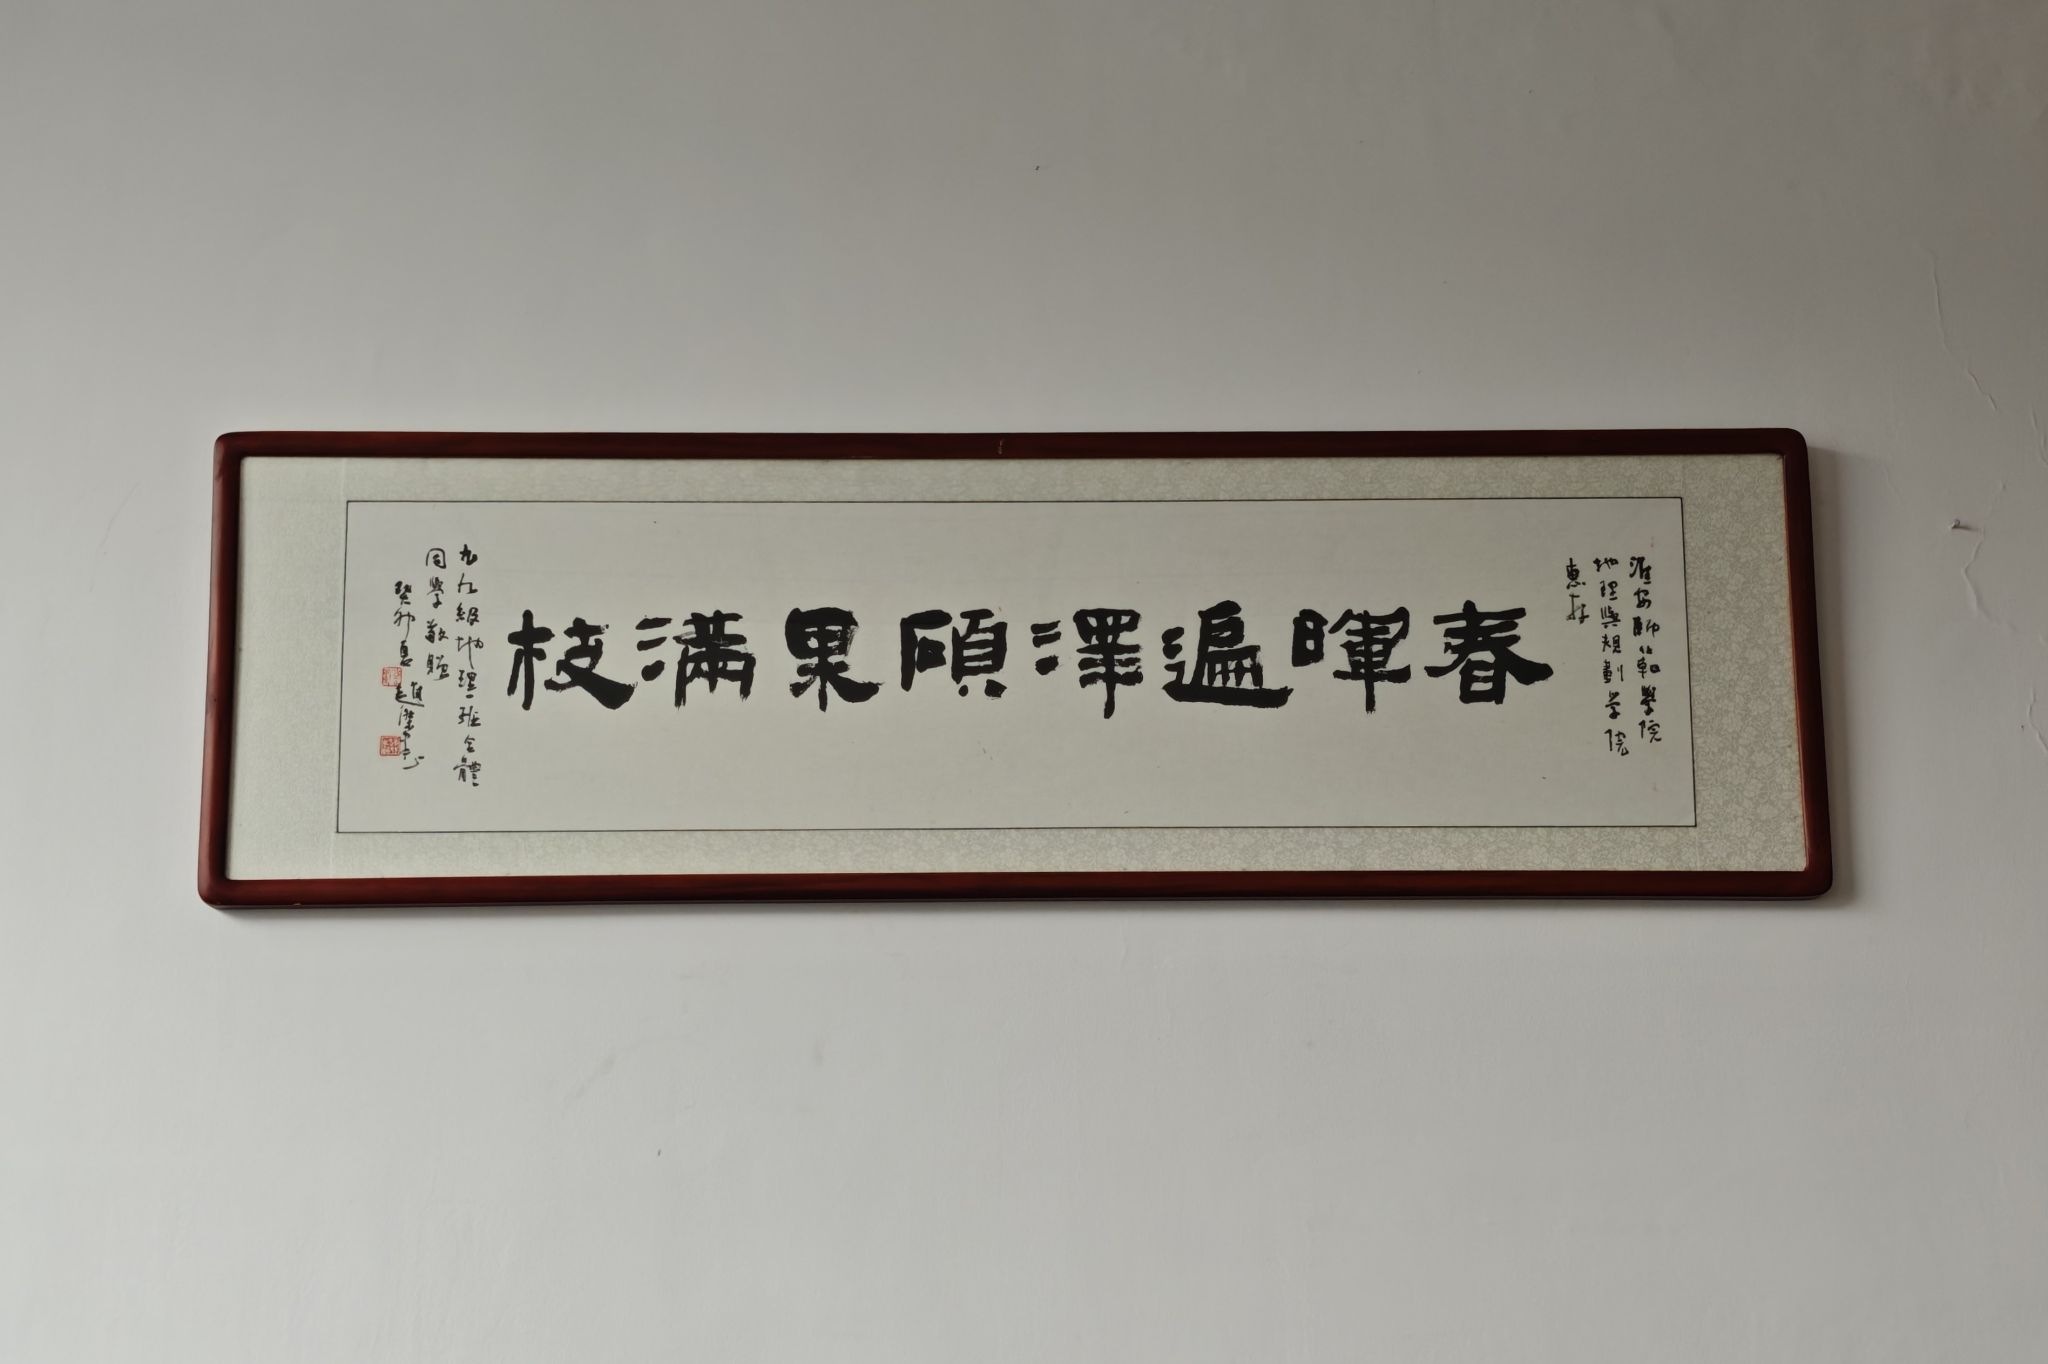 淮安師範學院
地理與規劃学院
惠存
春暉遍澤碩果滿枝
九九級地理一班全體
同學敬贈
癸卯夏
趙